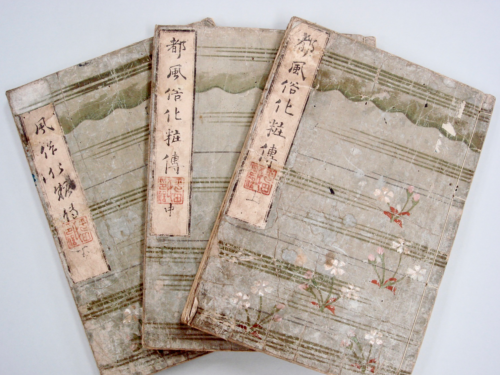 都風俗化粧傳
都風俗化粧傳 中
風俗化粧傳 下